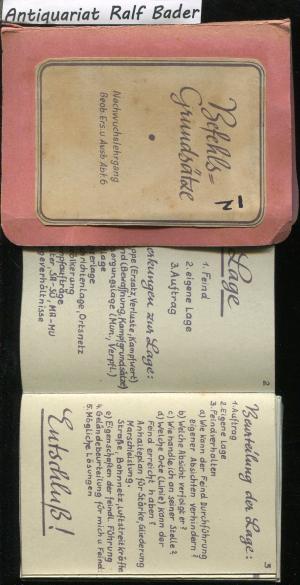 Antiquariat Ralf Bader
Befehls=
Grundsätze
Nachwuchslehrgang
Beob. Ers. u. Ausb. Abt. 6
Lage
1. Feind
2. eigene Lage
3. Auftrag
erkungen zur Lage:
ppe (Ersatz, Verluste, Kampfwert)
nd (Bewaffnung, Kampfgrundsätze)
ergungslage (Mun., Verpfl.)
lage
terlage
richtenlage, Ortsnetz
ölkerung
pfaufträge
ter, SA-SU, MA-MU
geverhältnisse
2
Beurteilung der Lage:
1. Auftrag
2. Eigene Lage
3. Feindverhalten
a) Wie kann der Feind Durchführung
eigener Absichten verhindern?
b) Welche Absicht verfolgt er?
c) Wie handle ich an seiner Stelle?
d) Welche Orte (Linie) kann der
Feind erreicht haben?
Anhaltsplan für Stärke, Gliederung
Marschleistung.
Straße, Bahnnetz, Luftstreitkräfte
e) Eigenschaften der feindl. Führung
4. Geländebeurteilung für mich u. Feind.
5. Mögliche Lösungen
Entschluß!
3